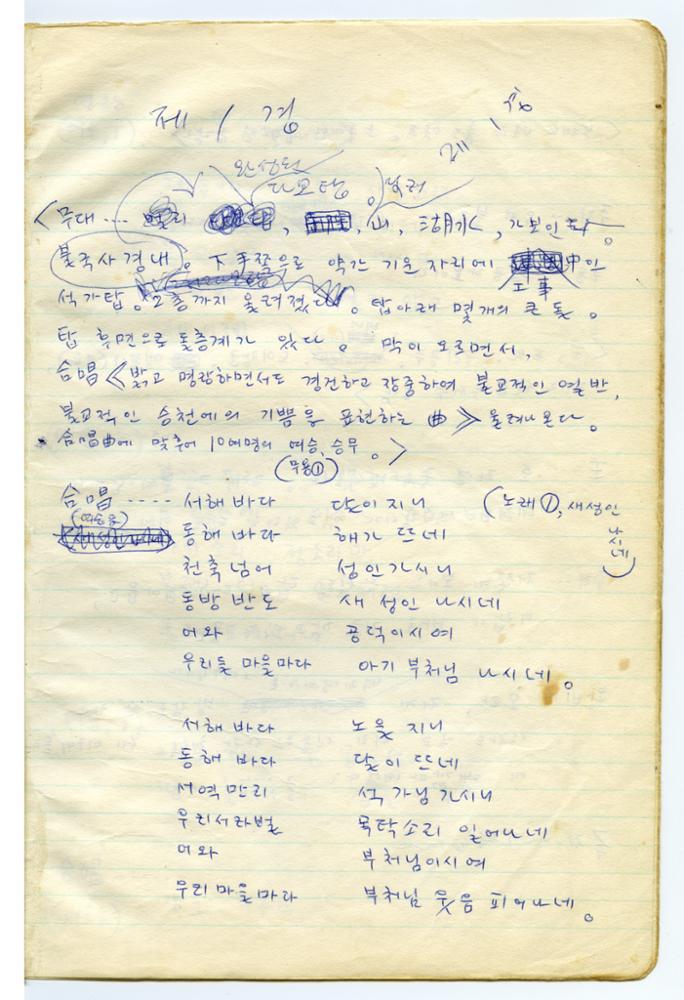 제 1 경
완성된
다보탑
멀리
<무대 .... 멀리, 山, 호水, 가 보인다.
불국사 경내. 下手쪽으로 약간 기운 자리에 工事中인
석가탑. 2층까지 올려졌다. 탑아래 몇개의 큰 돌.
탑 후면으로 돌층계가 있다. 막이 오르면서,
合唱 <밝고 명랑하면서도 경건하고 장중하여, 불교적인 열반,
불교적인 승천에의 기쁨을 표현하는 曲> 울려나온다.
合唱曲에 맞추어 10여명의 여승, 승무.>
(무용①)
合唱 ..... 서해 바다 달이 지니 (노래①, 새성인 나시네)
동해 바다 해가 뜨네
천축넘어 성인가시니
동방 반도 새 성인 나시네
어와 공덕이시여
우리들 마을마다 아기 부처님 나시네.
서해 바다 노을 지니
동해 바다 달이 뜨네
서역만리 석가님 가시니
우리서라벌 목탁소리 일어나네
어와 부처님이시여
우리 마을마다 부처님 웃음 피어나네.